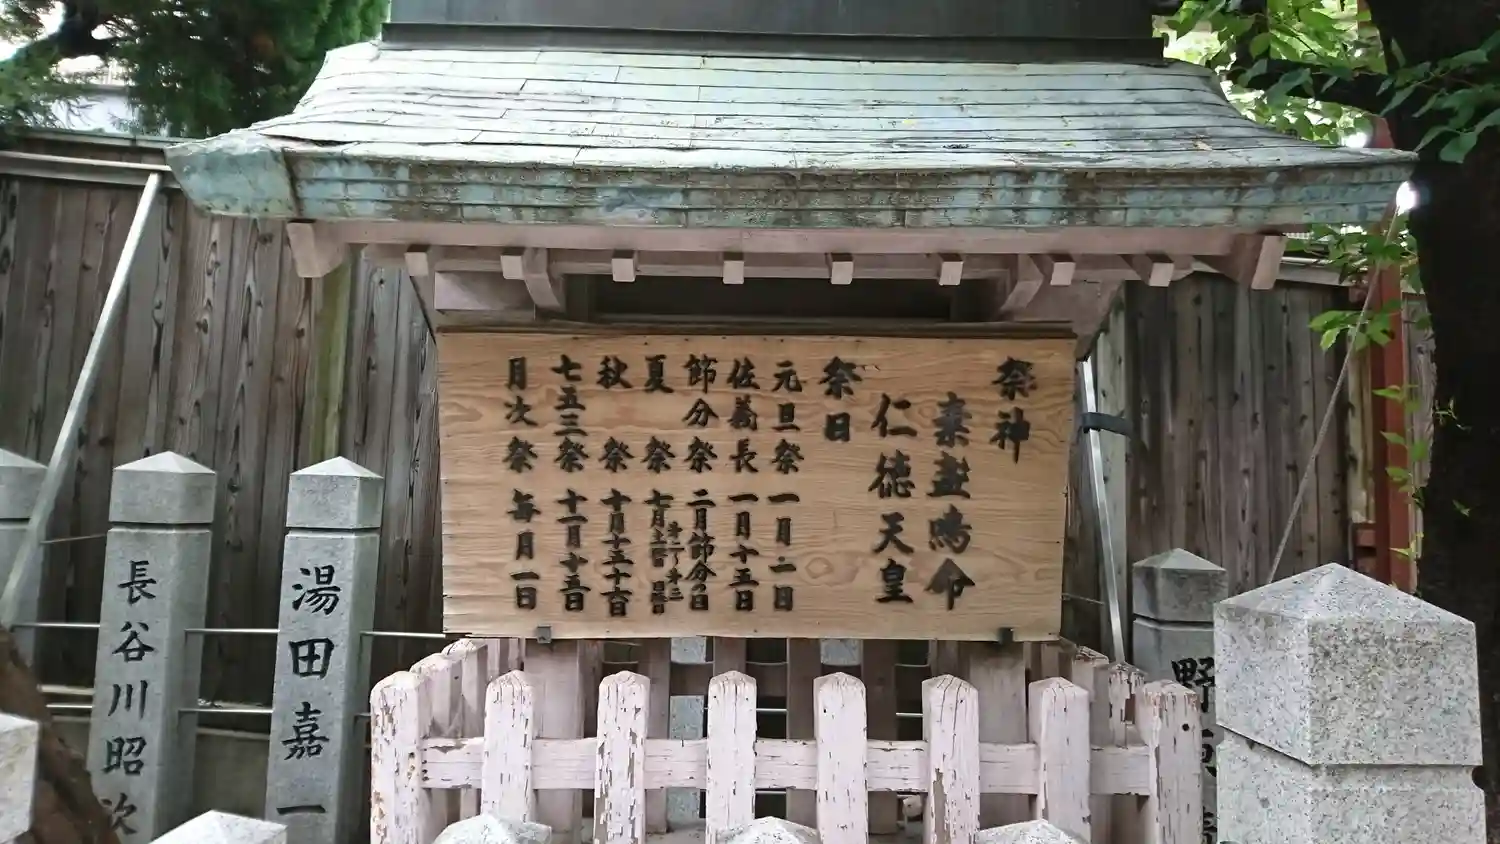 祭神
素盞嗚命
仁徳天皇
祭日
元旦祭 一月一日
佐義長 一月十五日
節分祭 二月節分の日
夏祭 七月第二土曜日 第三日曜日
秋祭 十月十五十六日
七五三祭 十一月十五日
月次祭 毎月一日
長谷川昭次
湯田嘉一
野